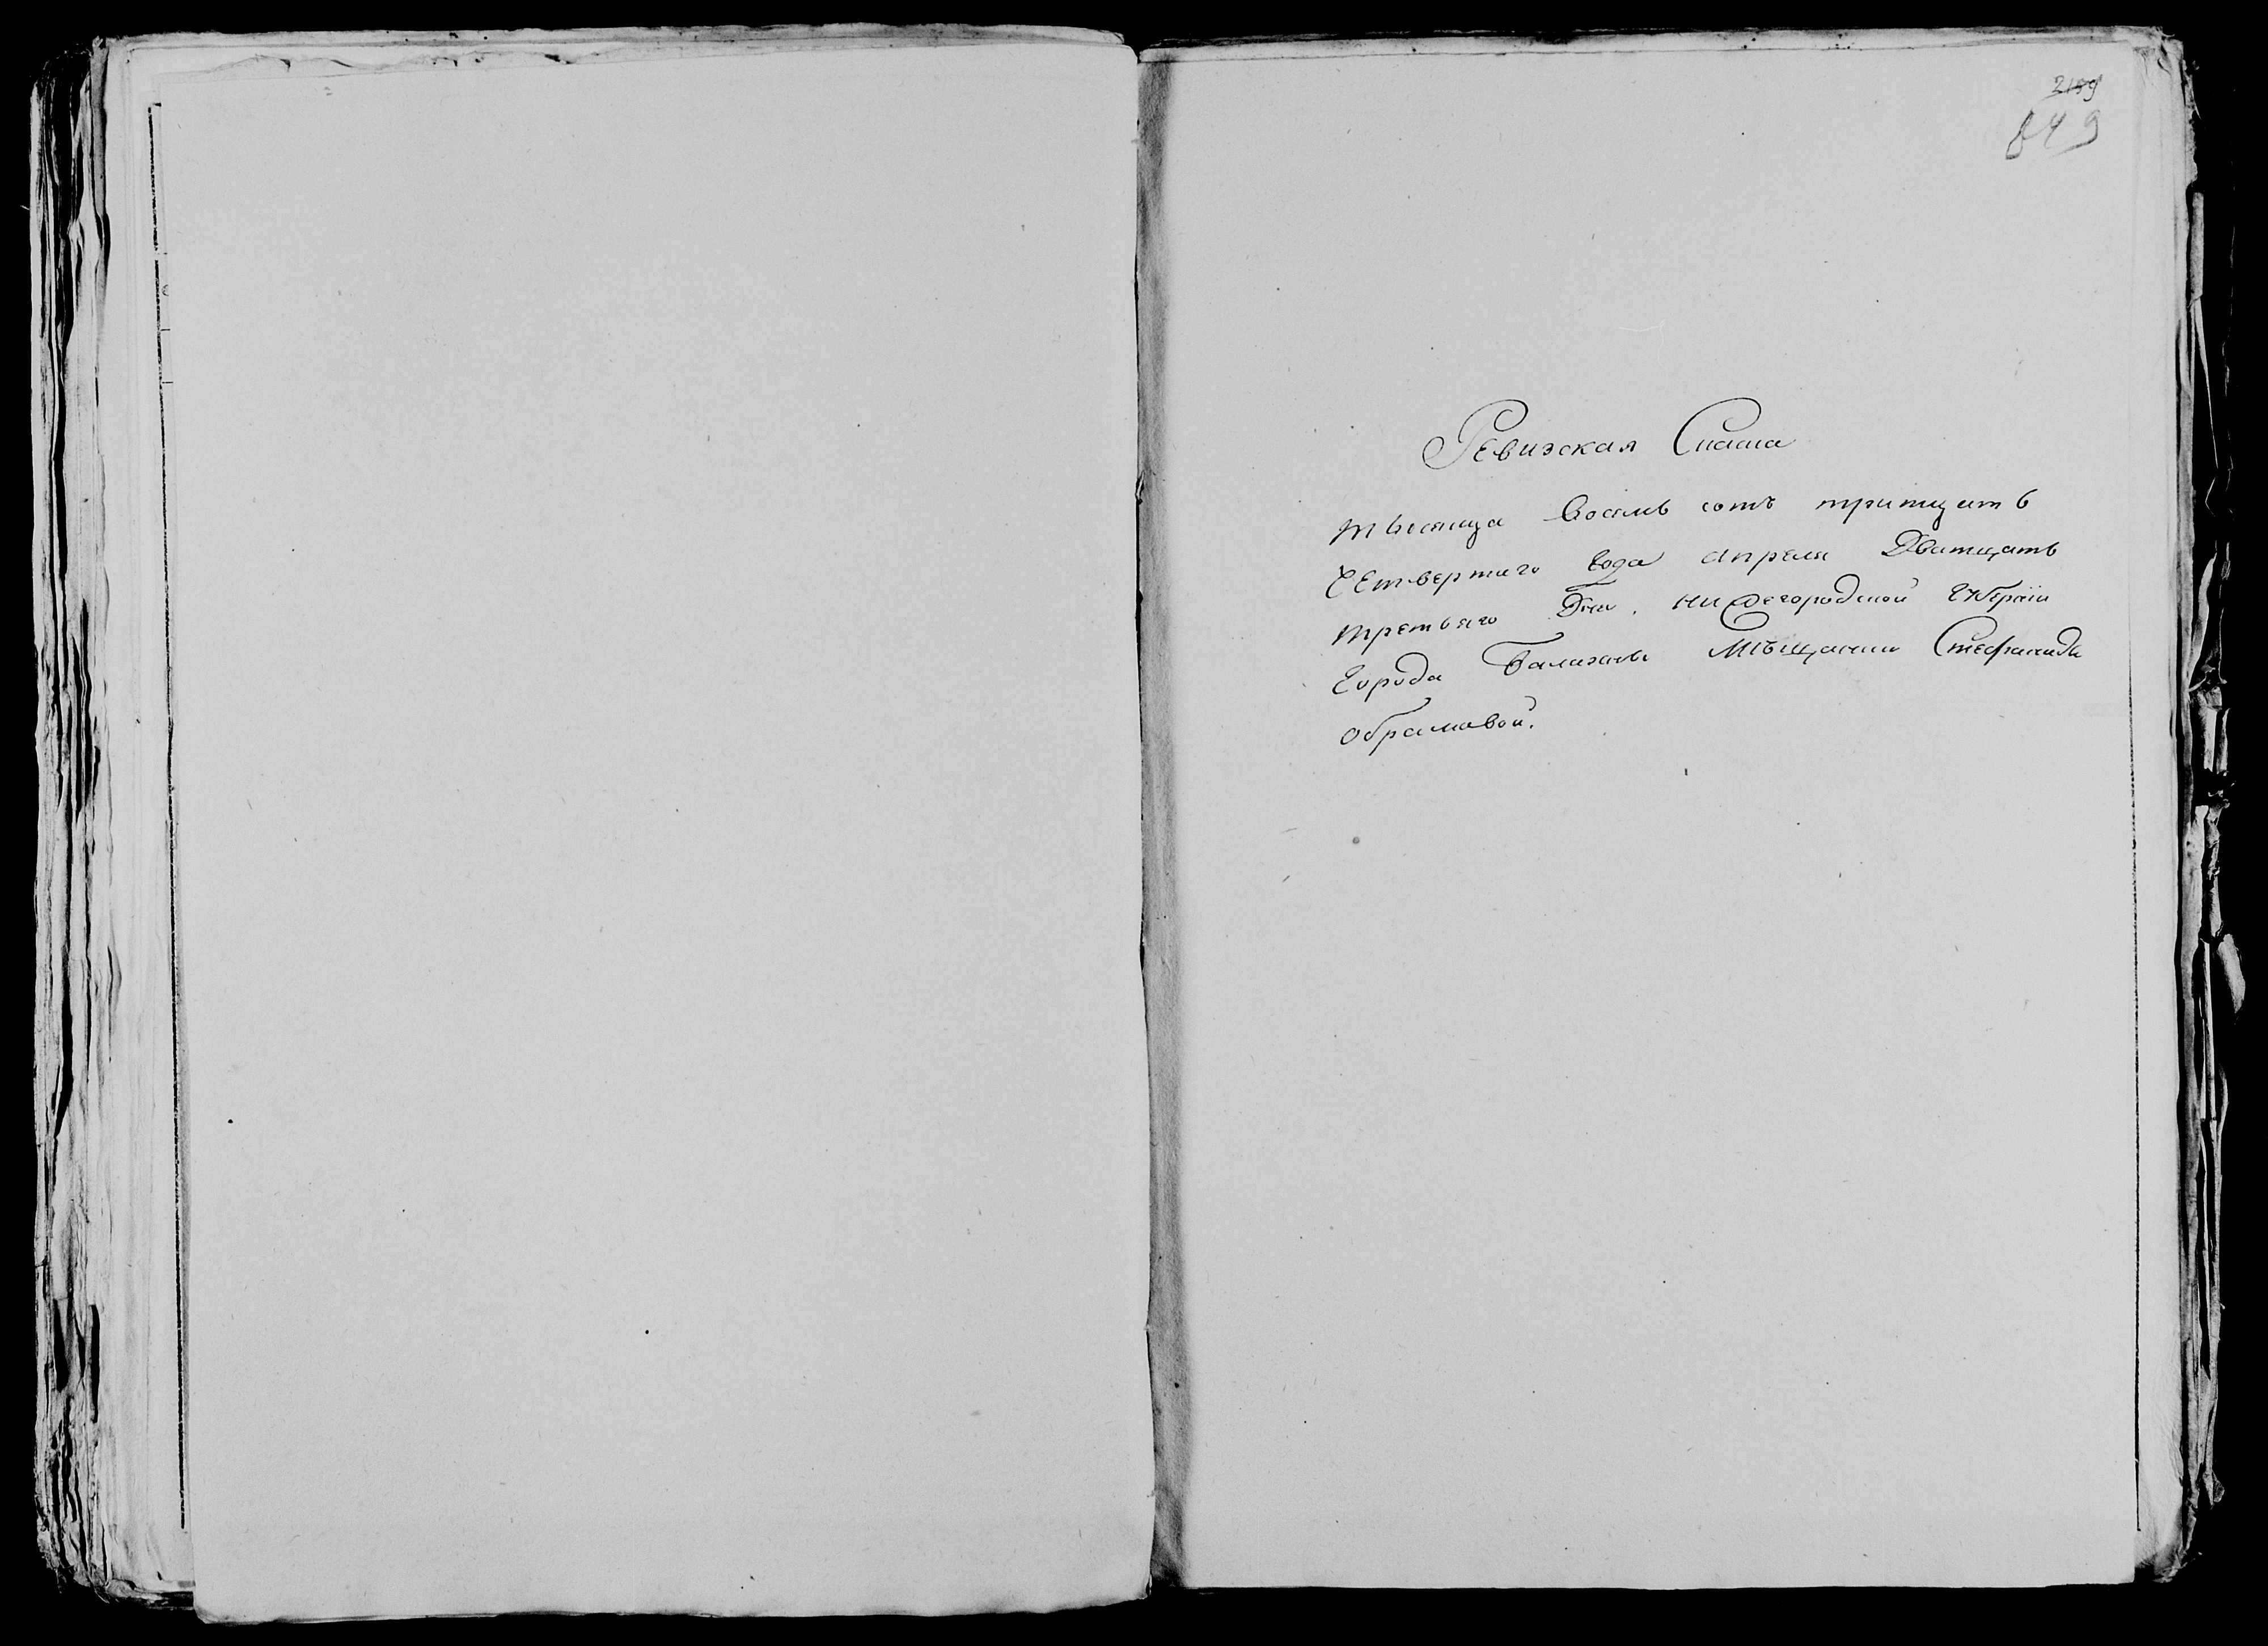 849
Ревизская Скаска
тысяща восемь сотъ тритцать
Четвертаго Года апреля Дватцать
третьяго Дня. Нижегородской Губерніи
Города Балахны Мѣщанки Стефаниды
Обрамавой.